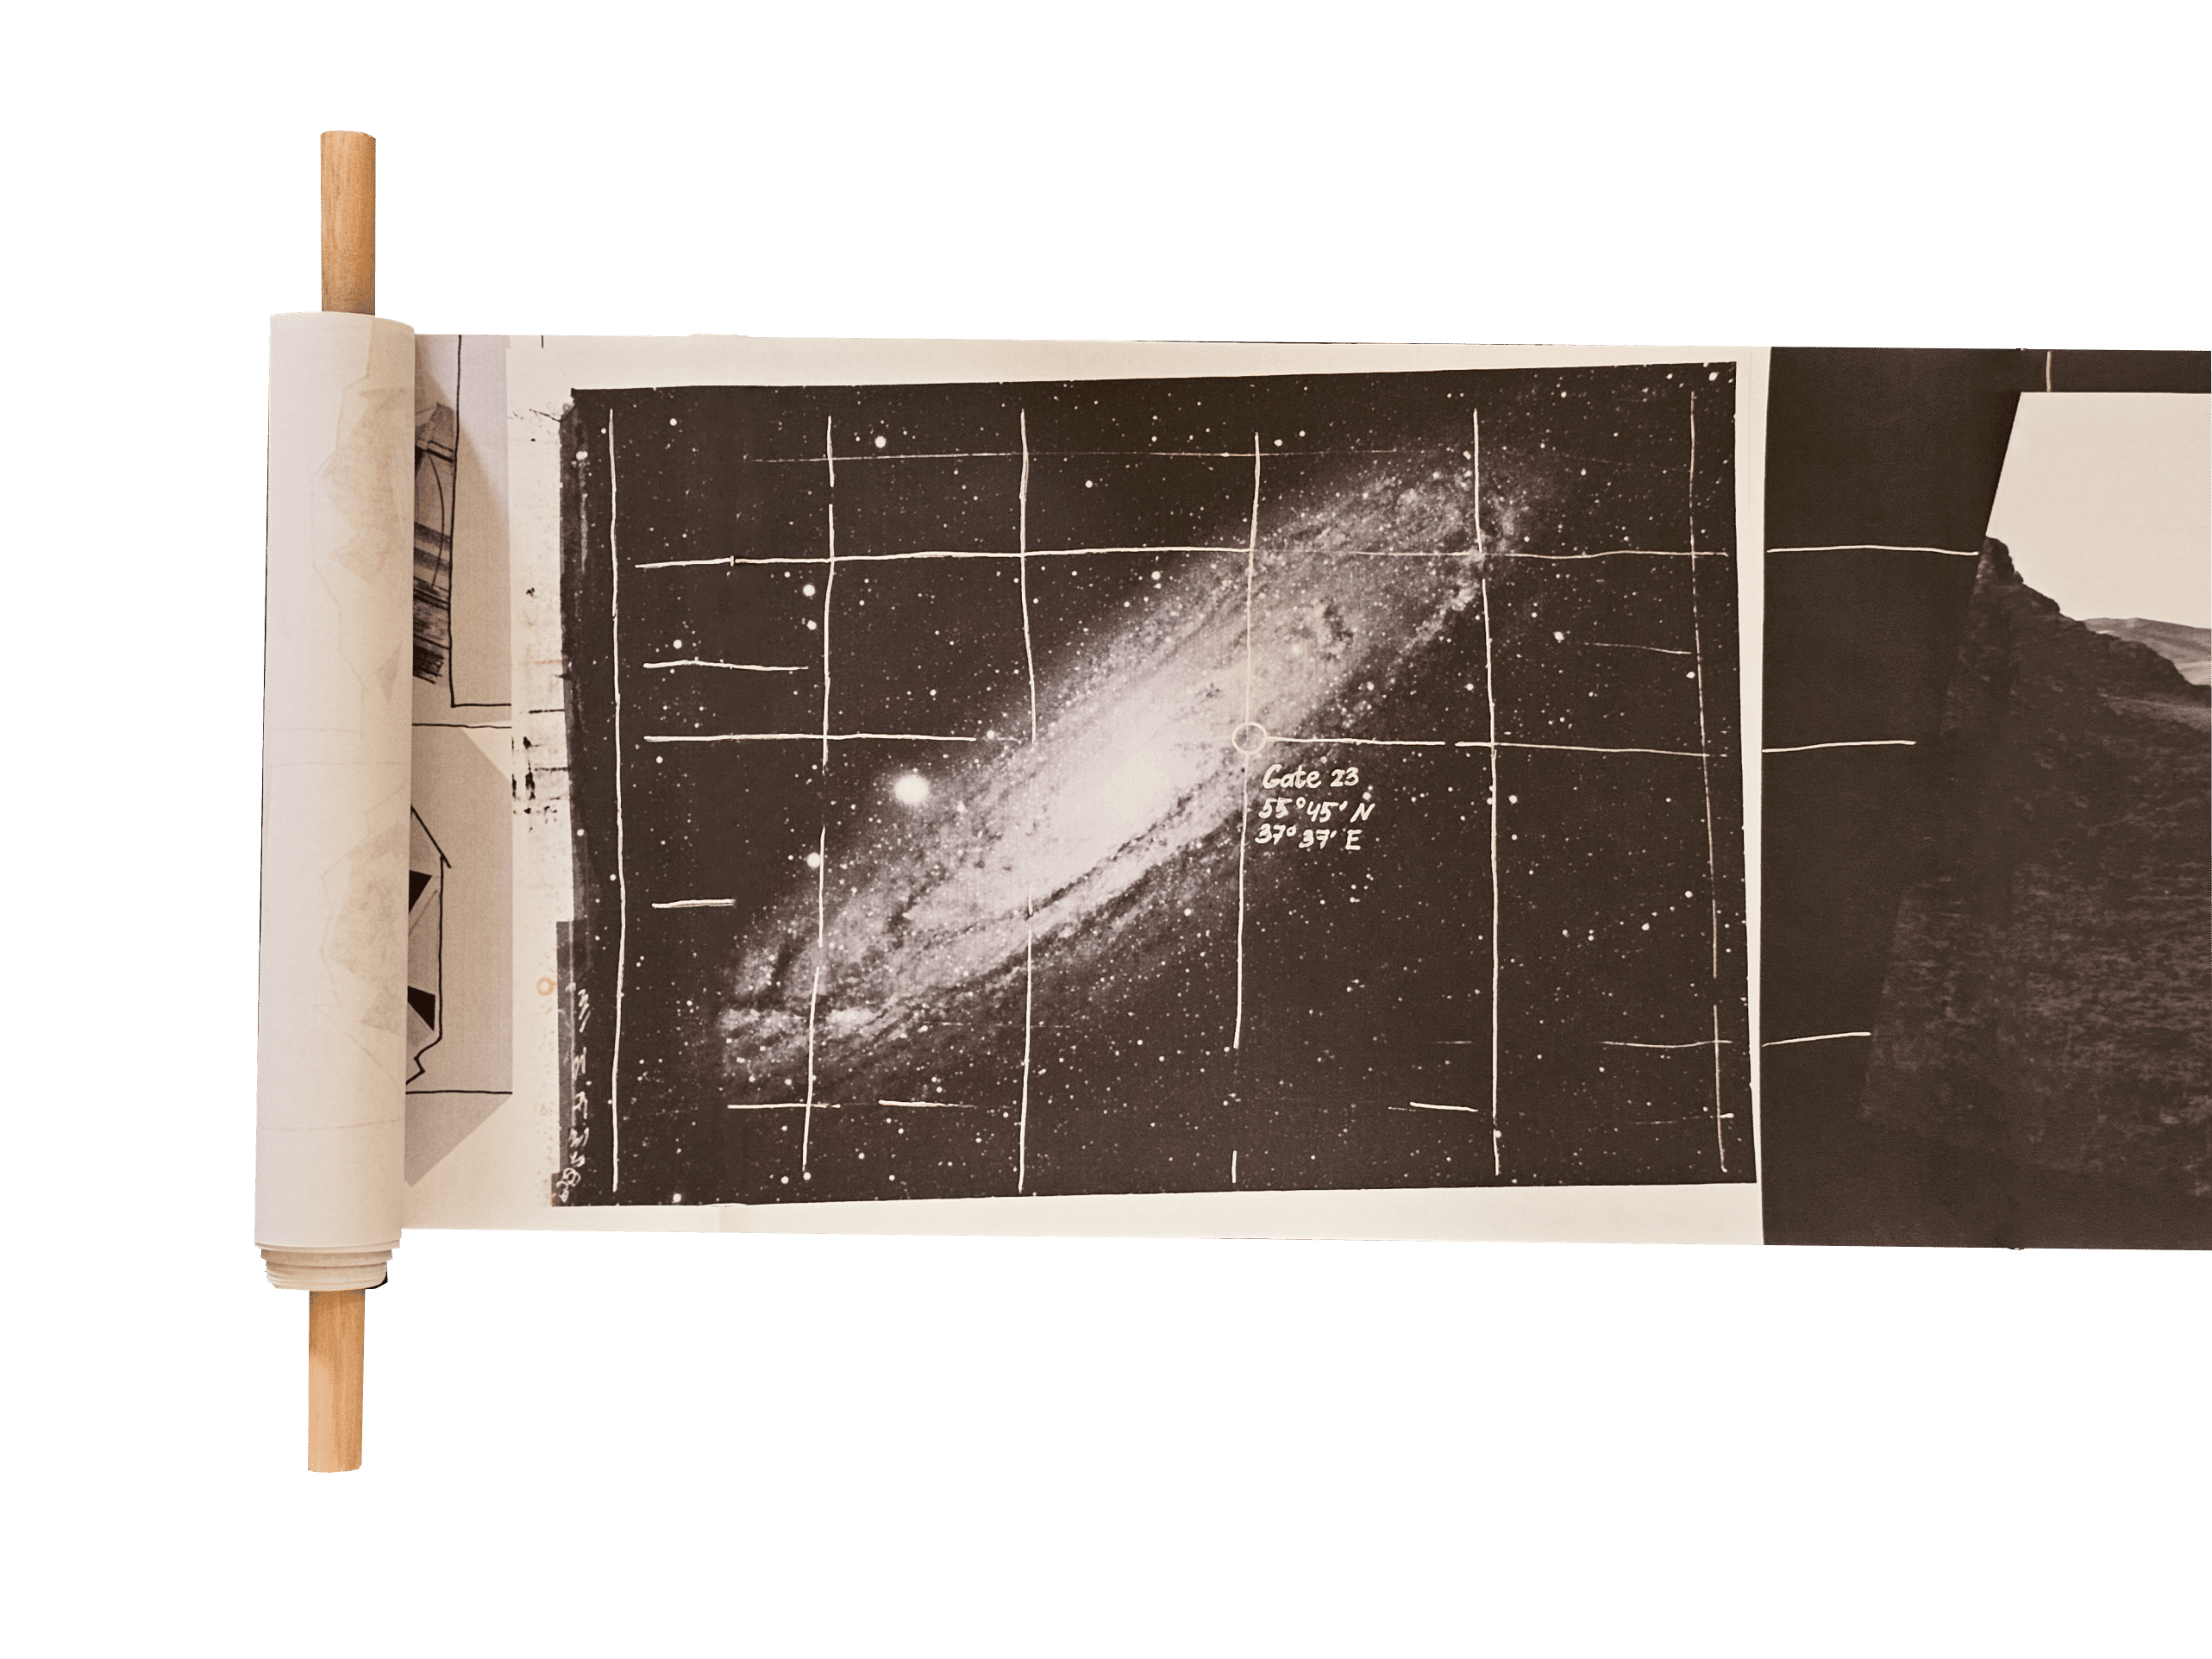 Gate 23
55°45' N
37°37' E